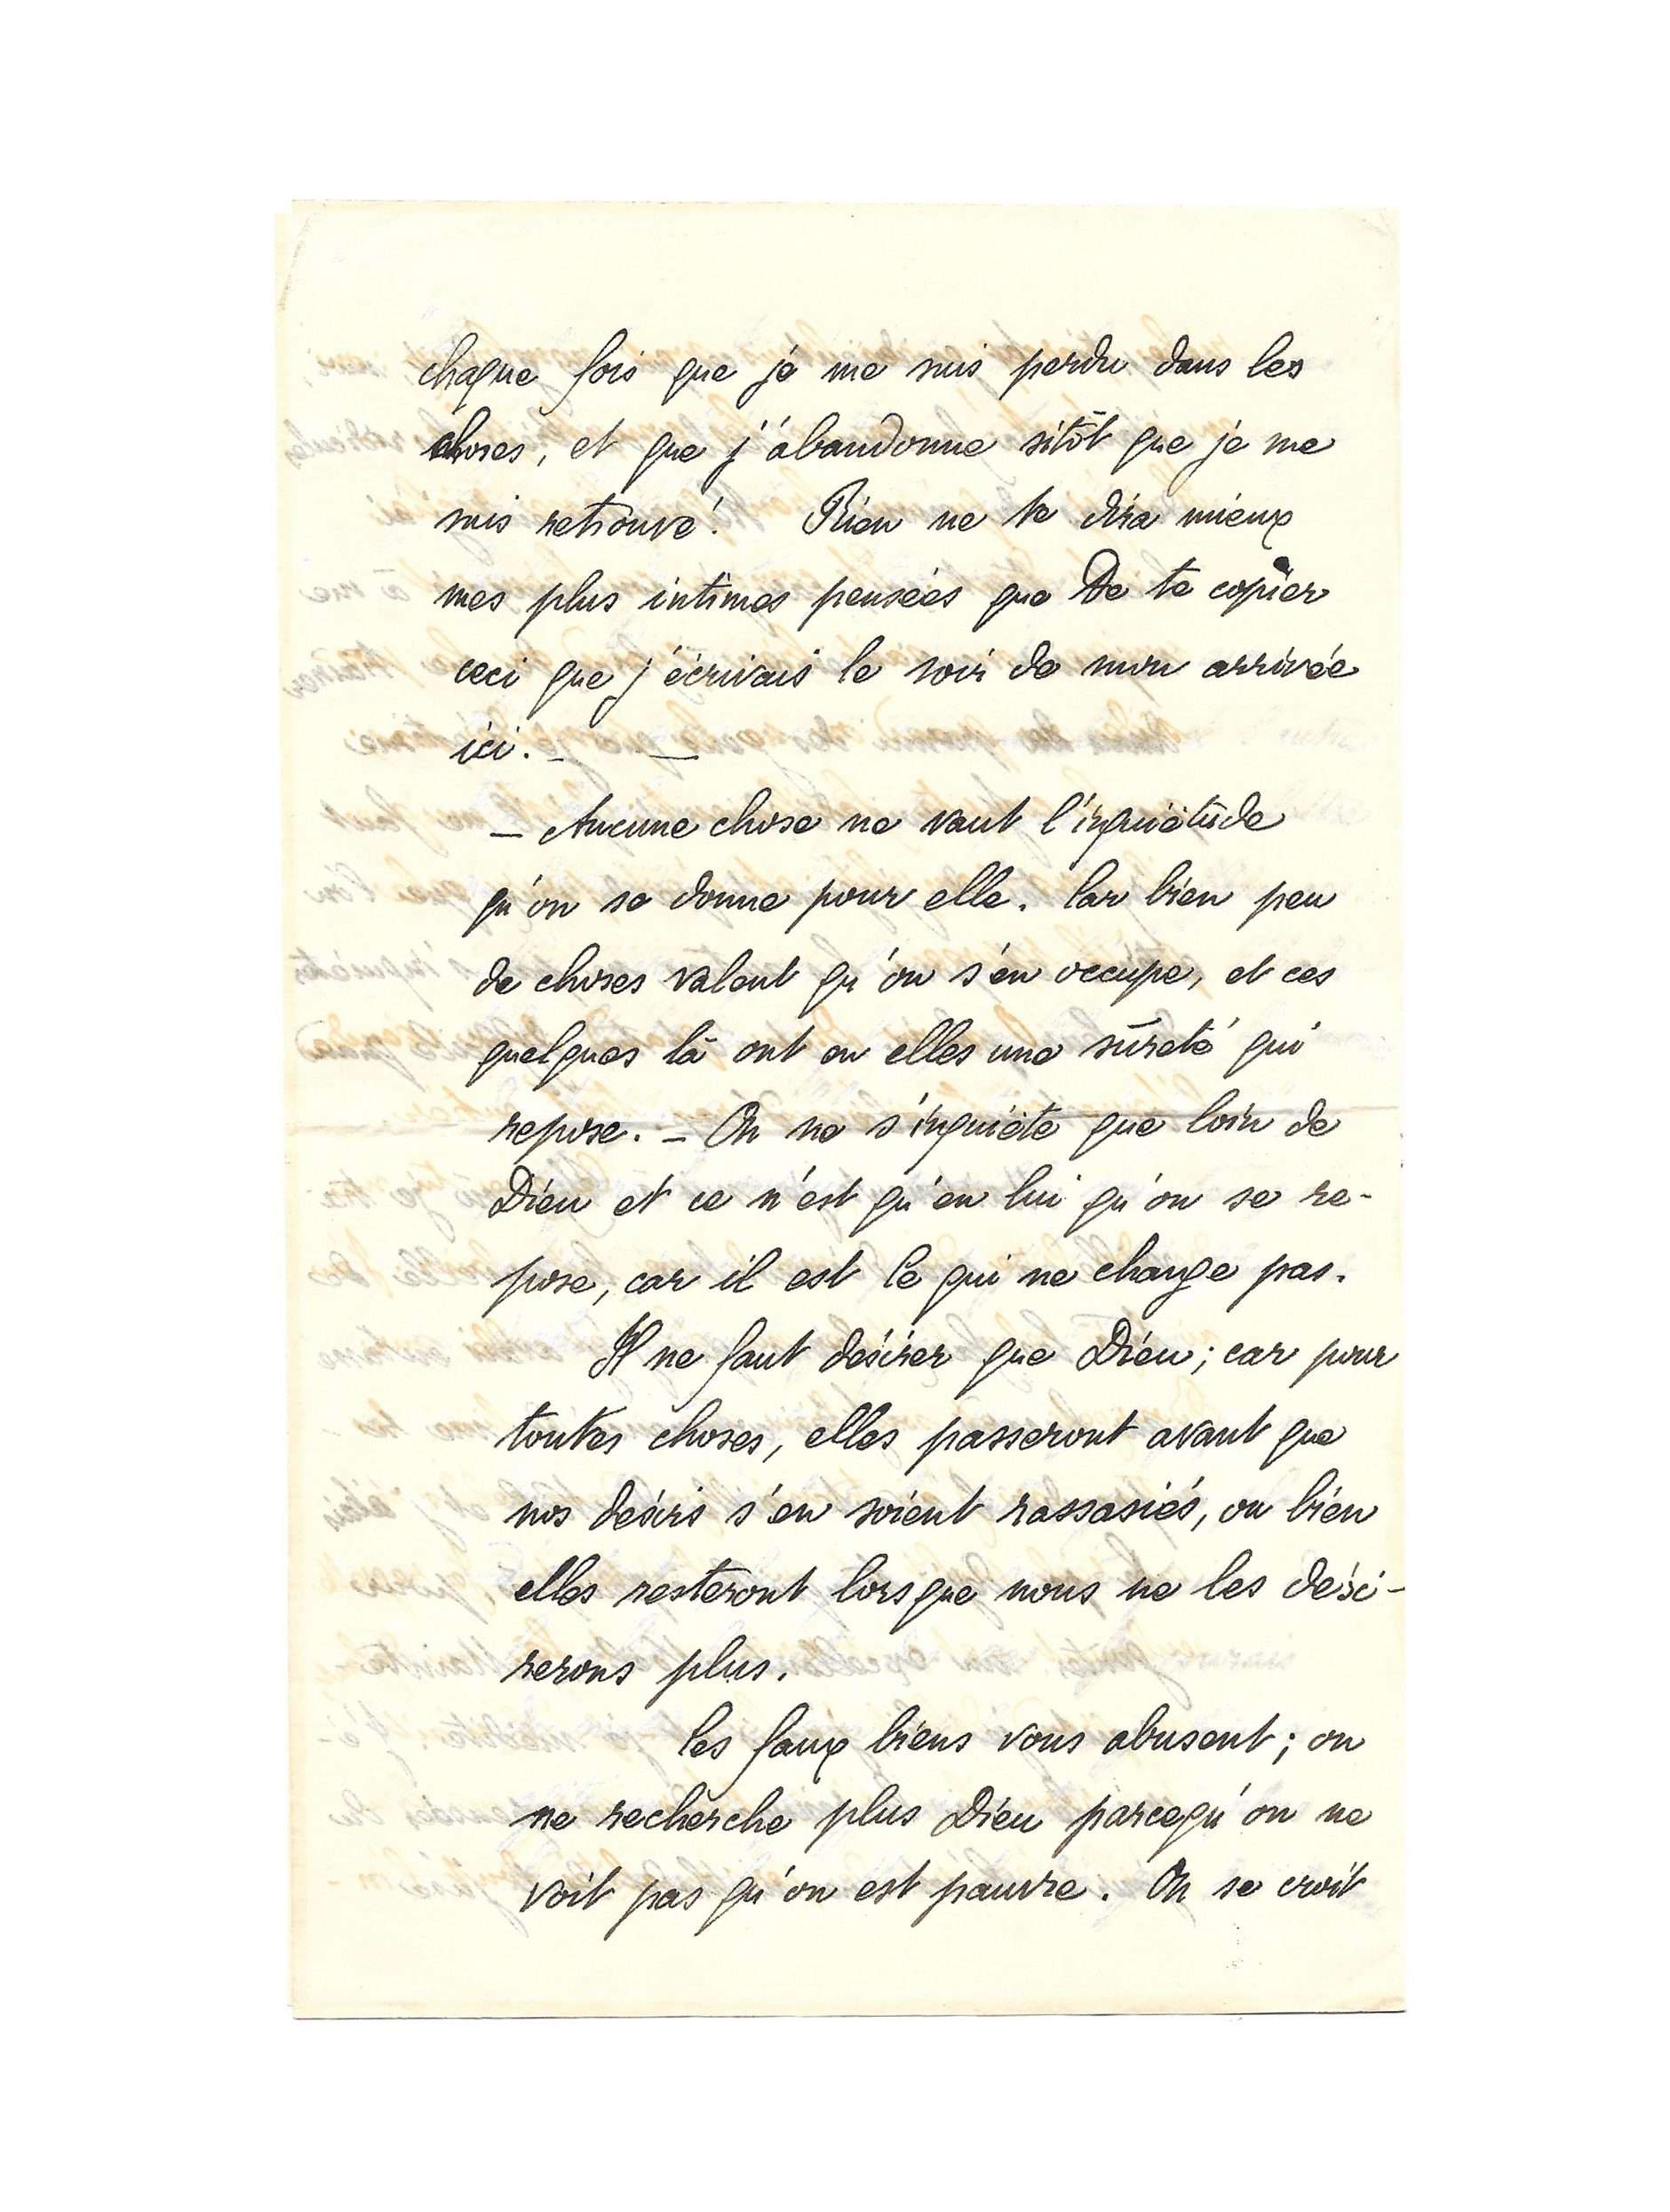 chaque fois que je me suis perdu dans les
choses, et que j'abandonne sitôt que je me
suis retrouvé! Rien ne te dira mieux
mes plus intimes pensées que de te copier
ceci que j'écrivais le soir de mon arrivée
ici. _ _
_ Aucune chose ne vaut l'inquiétude
qu'on se donne pour elle. Car bien peu
de choses valent qu'on s'en occupe, et ces
quelques là ont en elles une sûreté qui
repose. _ On ne s'inquiète que loin de
Dieu et ce n'est qu'en lui qu'on se re-
pose, car il est Ce qui ne change pas.
Il ne faut désirer que Dieu; car pour
toutes choses, elles passeront avant que
nos désirs s'en soient rassasiés, ou bien
elles resteront lorsque nous ne les dési-
rerons plus.
Les faux biens vous abusent; on
ne recherche plus Dieu parcequ'on ne
voit pas qu'on est pauvre. On se croit